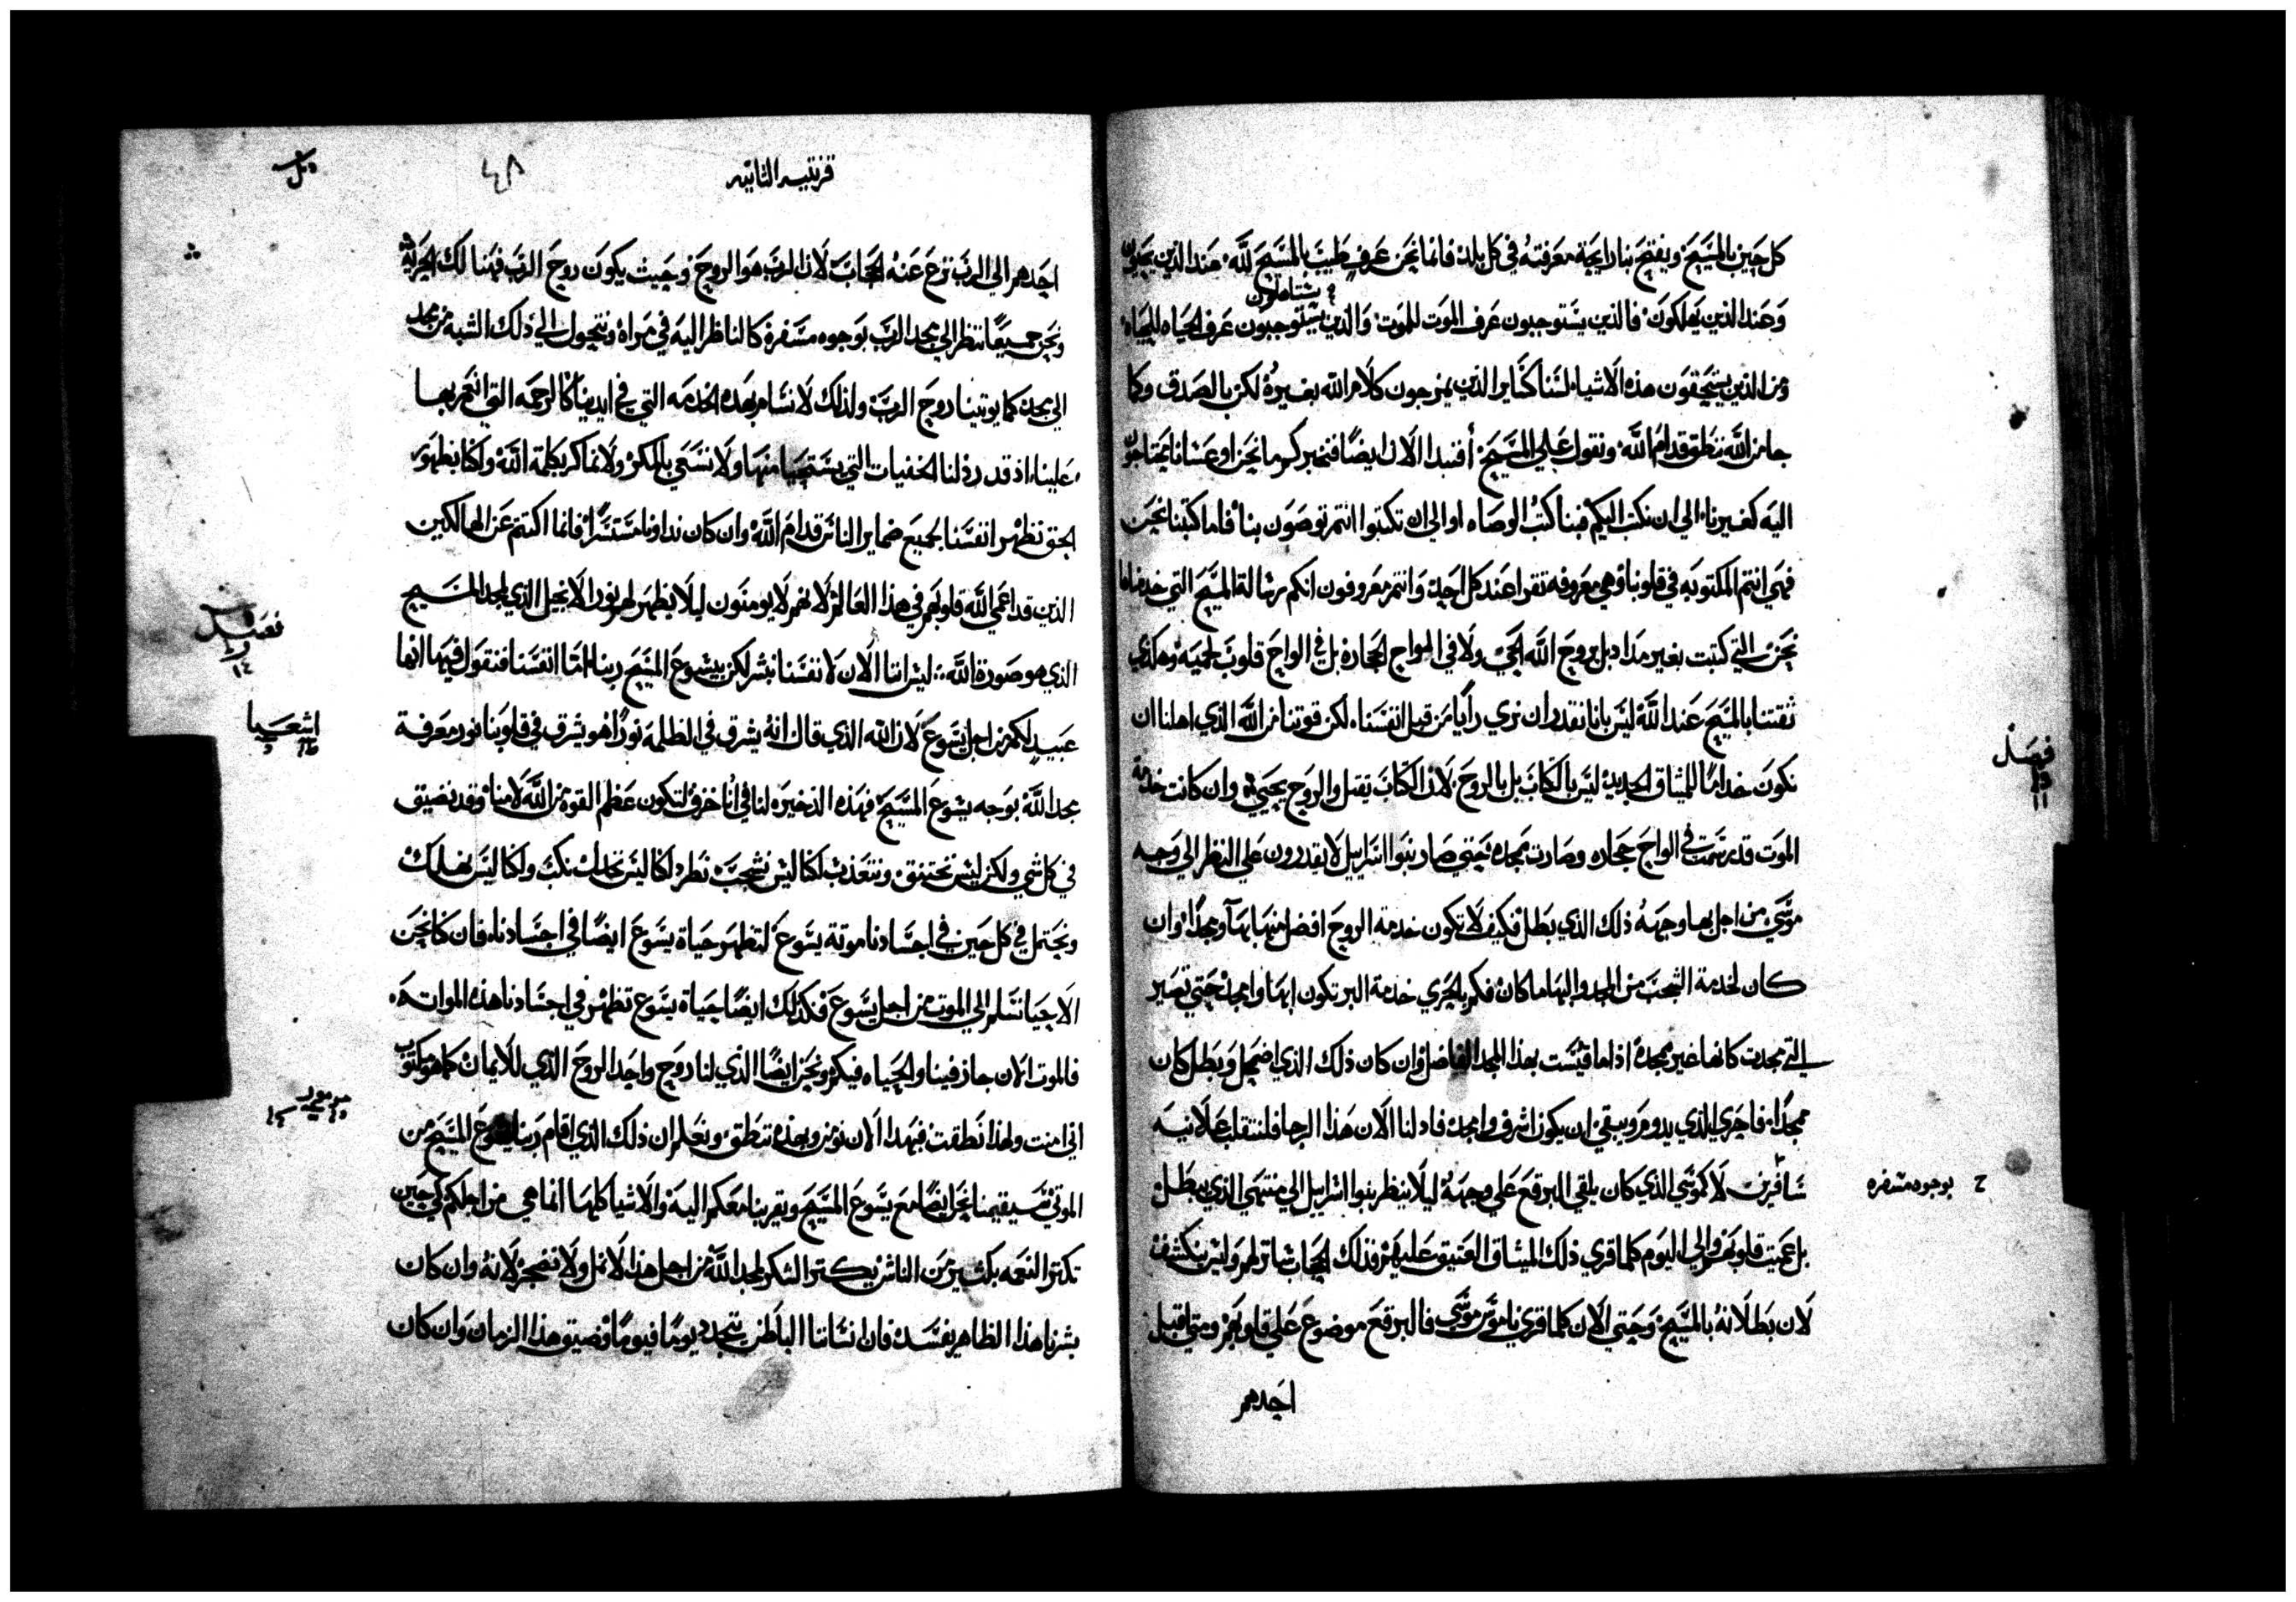 كل حين بالمسيح ويفتح بنا رايحة معرفته في كل بلد فانما نحن عرف طيب بالمسيح لله عند الذين يحيون
يستاهلون
وعند الذين يهلكون فالذين يستوجبون عرف الموت للموت والذين يستوجبون عرف الحياه للحياه
ومن الذين يستحقون هذه الاشياء لسنا كسايرالذين يمزجون كلام الله بغيره لكن بالصدق وكما
جا من الله ننطق قدام الله ونقول علي المسيح أفنبدا الان ايضا فنخبركم ما نحن او عسانا نحتاجون
اليه كغيرنا الي ان نكتب اليكم فينا كتب الوصاه او الي ان تكتبوا انتم توصون بنا فاما كتبنا نحن
فهي انتم المكتوبه في قلوبنا وهي معروفه تقرا عند كل احد وانتم معروفون انكم رسالة المسيح التي خدمناها
نحن التي كتبت بغير مداد بل بروح الله الحي ولا في الواح الحجاره بل في الواح قلوب لحميه وهكذي
ثقتنا بالمسيح عند الله ليس بانا نقدر ان نري رأيا من قبل انفسنا لكن قوتنا من الله الذي اهلنا ان
نكون خداما للميثاق الجديد ليس بالكتاب بل بالروح لان الكتاب يقتل والروح يحيي وان كانت خدمة
فصل
١١
الموت قد رسمت في الواح حجاره وصارت بمجده حتي صار بنوا اسراييل لا يقدرون علي النظر الي وجه
موسي من اجل بها وجهه ذلك الذي بطل فكيف لا تكون خدمة الروح افضل منها بهآ ومجدا وان
كان لخدمة الشجب من المجد والبها ما كان فكم بالحري خدمة البر تكون ابها وامجد حتي تصير
التي مجدت كانها غير ممجده اذا ما قيست بهذا المجد الفاضل وان كان ذلك الذي اضمحل وبطل كان
ممجدا فاحري الذي يدوم ويبقي ان يكون اشرف وامجد فاد لنا الان هذا الرجا فلنتقلب علانيه
سافرين لا كموسي الذي كان يلقي البرقع علي وجهه ليلا ينظر بنوا اسراييل الي منتهي الذي يبطل
ح بوجوه مسفره
بل عميت قلوبهم والي اليوم كلما قري ذلك الميثاق العتيق عليهم فذلك الحجاب ساتر لهم وليس ينكشف
لان بطلانه بالمسيح وحتي الان كلما قري ناموس موسي فالبرقع موضوع علي قلوبهم ومتي اقبل
احدهم
قرنتيه الثانيه
٤٨
احدهم الي الرب نزع عنه الحجاب لان الرب هو الروح وحيث يكون روح الرب فهنالك الحرية
ونحن جميعا ننظر الي مجد الرب بوجوه مسفرة كالناظر اليه في مراة ونتحول الي ذلك الشبه من مجد
الي مجد كما يوتينا روح الرب ولذلك لا نسام بهذه الخدمه التي في ايدينا كالرحمه التي انعم بها
علينا اذ قد رذلنا الخفيات التي يستحيا منها ولا نسعي بالمكر ولا نماكر بكلمة الله ولكنا بظهور
الحق نظهر انفسنا لجميع ضماير الناس قدام الله وان كان نداونا مستترا فانما اكتتم عن الهالكين
الذين قد اعمي الله قلوبهم في هذا العالم لانهم لا يومنون ليلا يظهر لهم نور الانجيل الذي لمجد المسيح
فصل
١٢
الذي هو صورة الله ليس اننا الان لانفسنا نبشر لكن بيسوع المسيح ربنا امّا انفسنا فنقول فيها انها
عبيد لكم من اجل يسوع لان الله الذي قال انه يشرق في الظلمة نورا هو يشرق في قلوبنا نور معرفة
اشعيا
مجد الله بوجه يسوع المسيح فهذه الذخيره لنا في انا خزف لتكون عظم القوة من الله لا منا وقد نضيق
في كل شي ولكن ليس نختنق ونتعذب لكنا ليس نشجب نطرد لكنا ليس نخذل نكب ولكنا ليس نهلك
ونحتمل في كل حين في اجسادنا موتة يسوع لتظهر حياة يسوع ايضا في اجسادنا فان كنا نحن
الاحيا نسلم الي الموت من اجل يسوع فكذلك ايضا حياة يسوع تظهر في اجسادنا هذه المواته
فالموت الان جاز فينا والحياه فيكم ونحن ايضا الذي لنا روح واحد الروح الذي للايمان كما هو مكتوب
مزمور
اني امنت ولهذا نطقت فبهذا الان نؤمن وبهذه ننطق ونعلم ان ذلك الذي اقام ربنا يسوع المسيح من
الموتي سيقيمنا نحن ايضا مع يسوع المسيح ويقربنا معكم اليه والاشيا كلها انما هي من اجلكم كي حين
تكثر النعمه بكثير من الناس يكثر الشكر لمجد الله من اجل هذا لا نمل ولا نضجر لانه وان كان
بشرنا هذا الظاهر يفسد فان انساننا الباطن يتجدد يوما فيوما وضيق هذا الزمان وان كان